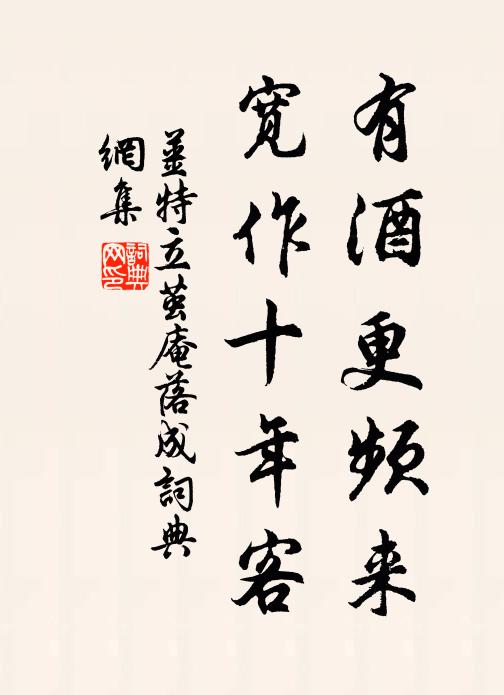 有酒更频来
宽作十年客
姜特立茧庵落成詞典
網集
詞典
网印